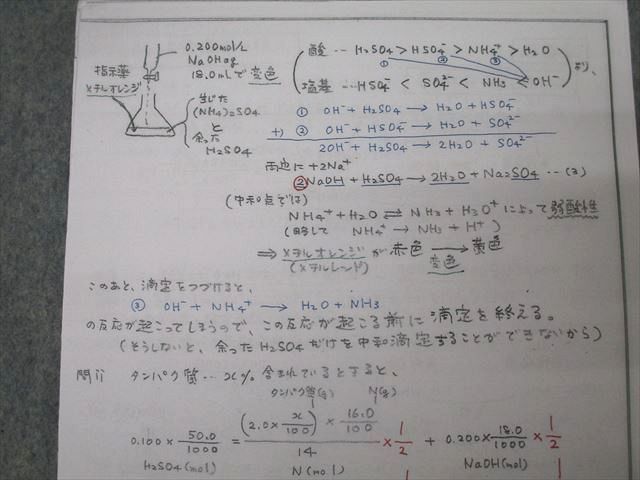 0.200mol/L
NaOHaq
18.0mLで変色
指示薬
メチルオレンジ
生じた
(NH4)2SO4
と
余った
H2SO4
酸 … H2SO4 > HSO4⁻ > NH4⁺ > H2O
① ② ③
塩基 … HSO4⁻ < SO4²⁻ < NH3 < OH⁻
より、
① OH⁻ + H2SO4 → H2O + HSO4⁻
+) ② OH⁻ + HSO4⁻ → H2O + SO4²⁻
2OH⁻ + H2SO4 → 2H2O + SO4²⁻
両辺に +2Na⁺
2NaOH + H2SO4 → 2H2O + Na2SO4 … (3)
(中和点では)
NH4⁺ + H2O ⇄ NH3 + H3O⁺ によって弱酸性
(略して NH4⁺ → NH3 + H⁺)
⇒ メチルオレンジが 赤色 → 黄色
(メチルレッド) 変色
このあと、滴定をつづけると、
③ OH⁻ + NH4⁺ → H2O + NH3
の反応が起こってしまうので、この反応が起こる前に滴定を終える。
(そうしないと、余ったH2SO4だけを中和滴定することができないから)
問ii タンパク質 … x% 含まれているとすると、
タンパク質(g) N(g)
0.100 × 50.0/1000 = (2.0 × x/100) × 16.0/100 / 14 × 1/2 + 0.200 × 18.0/1000 × 1/2
H2SO4(mol) N(mol) NaOH(mol)